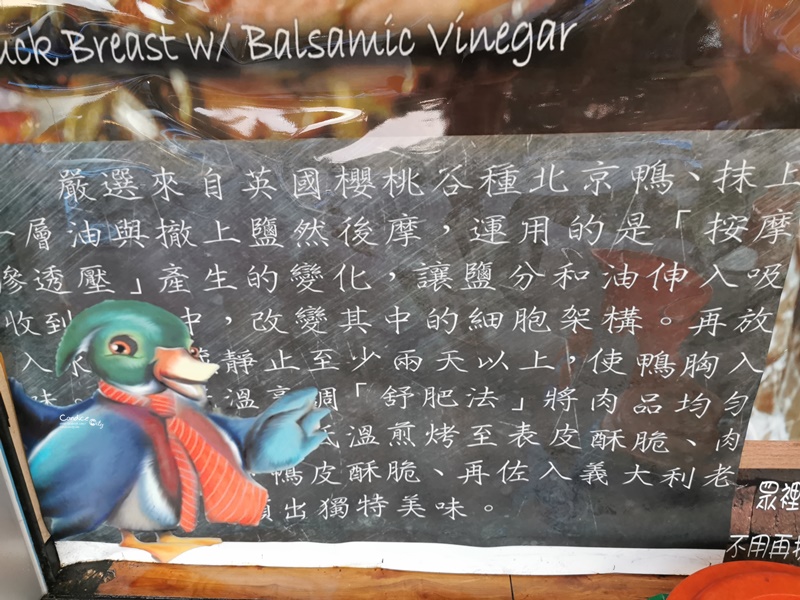 uck Breast w/ Balsamic Vinegar
嚴選來自英國櫻桃谷種北京鴨、抹上
一層油與撤上鹽然後摩，運用的是「按摩
滲透壓」產生的變化，讓鹽分和油伸入吸
收到 中，改變其中的細胞架構。再放
入 靜止至少兩天以上，使鴨胸入
味 溫烹調「舒肥法」將肉品均勻
低溫煎烤至表皮酥脆、肉
鴨皮酥脆、再佐入義大利老
出獨特美味。
眾裡
不用再